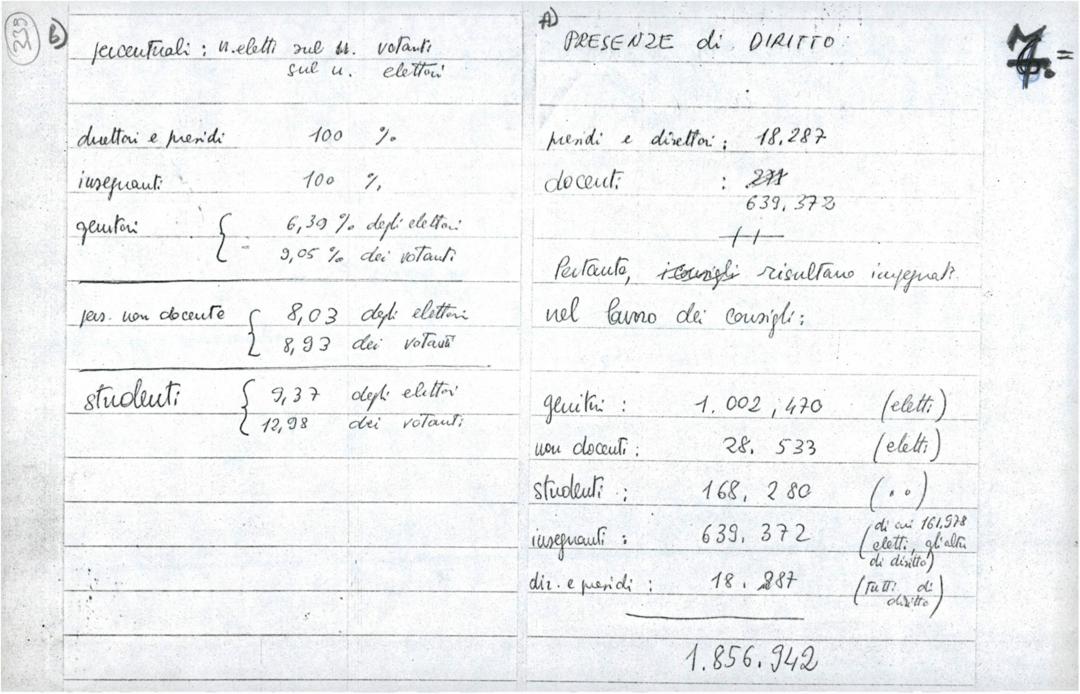 239
B)
percentuali : n. eletti sul n. votanti
sul n. elettori
direttori e presidi 100 %
insegnanti 100 %
genitori { 6,39 % degli elettori
9,05 % dei votanti
pers. non docente { 8,03 degli elettori
8,93 dei votanti
studenti { 9,37 degli elettori
12,98 dei votanti
A)
PRESENZE di DIRITTO:
presidi e direttori : 18.287
docenti : 271
639.372
Pertanto, i consigli risultano impegnati
nel lavoro dei consigli:
genitori : 1.002.470 (eletti)
non docenti : 28.533 (eletti)
studenti : 168.280 (..)
insegnanti : 639.372 (di cui 161.978
eletti, gli altri
di diritto)
dir. e presidi : 18.287 (tutti di
diritto)
1.856.942